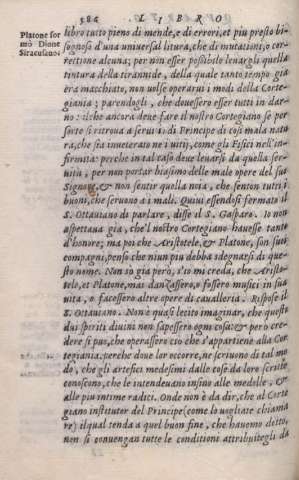 386 LIBRO
Platone for
mò Dione
Siracusano.
libro tutto pieno di mende, e di errori, et piu presto bi-
sognoso d'una universal litura, che di mutationi, o cor-
rettione alcuna; per non esser possibile levargli quella
tintura della tirannide, della quale tanto tempo già
era macchiato, non volse operarvi i modi della Corte
giania; parendogli, che dovessero esser tutti in dar-
no: il che ancora deve fare il nostro Cortegiano se per
sorte si ritrova a servitio di Principe di così mala natu
ra, che sia inveterato ne i vitij, come gli Fisici nell'in-
firmità: perche in tal caso deve levarsi da quella ser-
vitù, per non portar biasimo delle male opere del suo
Signore, & non sentir quella noia, che senton tutti i
buoni, che servono a i mali. Quivi essendosi fermato il
S. Ottaviano di parlare, disse il S. Gasparo. Io non
aspettava già, che'l nostro Cortegiano havesse tanto
d'honore; ma poi che Aristotele, & Platone, son suoi
compagni, penso che niun piu debba sdegnarsi di que-
sto nome. Non so già però, s'io mi creda, che Aristo-
tele, et Platone, mai danzassero, o fossero musici in sua
vita, o facessero altre opere di cavalleria. Rispose il
S. Ottaviano. Non è quasi lecito imaginar, che questi
dui spiriti divini non sapessero ogni cosa: & però cre-
dere si può, che operassero ciò che s'appartiene alla Cor
tegiania: perche dove lor occorre, ne scrivono di tal mo
do, che gli artefici medesimi dalle cose da loro scritte
conoscono, che le intendevano insino alle medolle, &
alle piu intime radici. Onde non è da dir, che al Corte
giano institutor del Principe (come lo vogliate chiama
re) il qual tenda a quel buon fine, che havemo detto,
non si convengan tutte le conditioni attribuitegli da